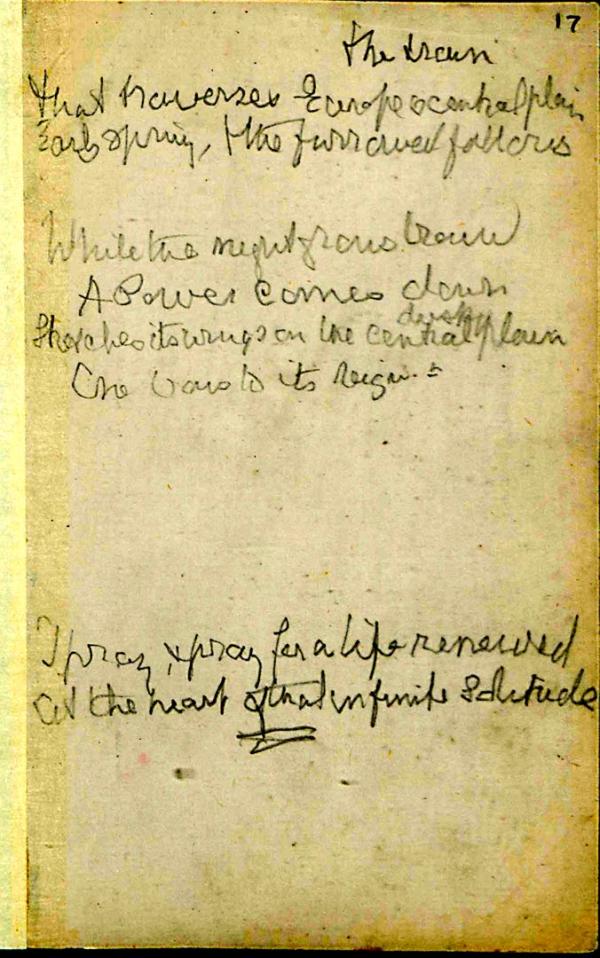 17
The train
that traverses Europe's central plain
Early spring, & the furrowed fallows
While the night grows brown
A Power comes down
dusky
Stretches its wings on the central plain
One bows to its reign.
I pray, & pray for a life renewed
At the heart of that infinite solitude